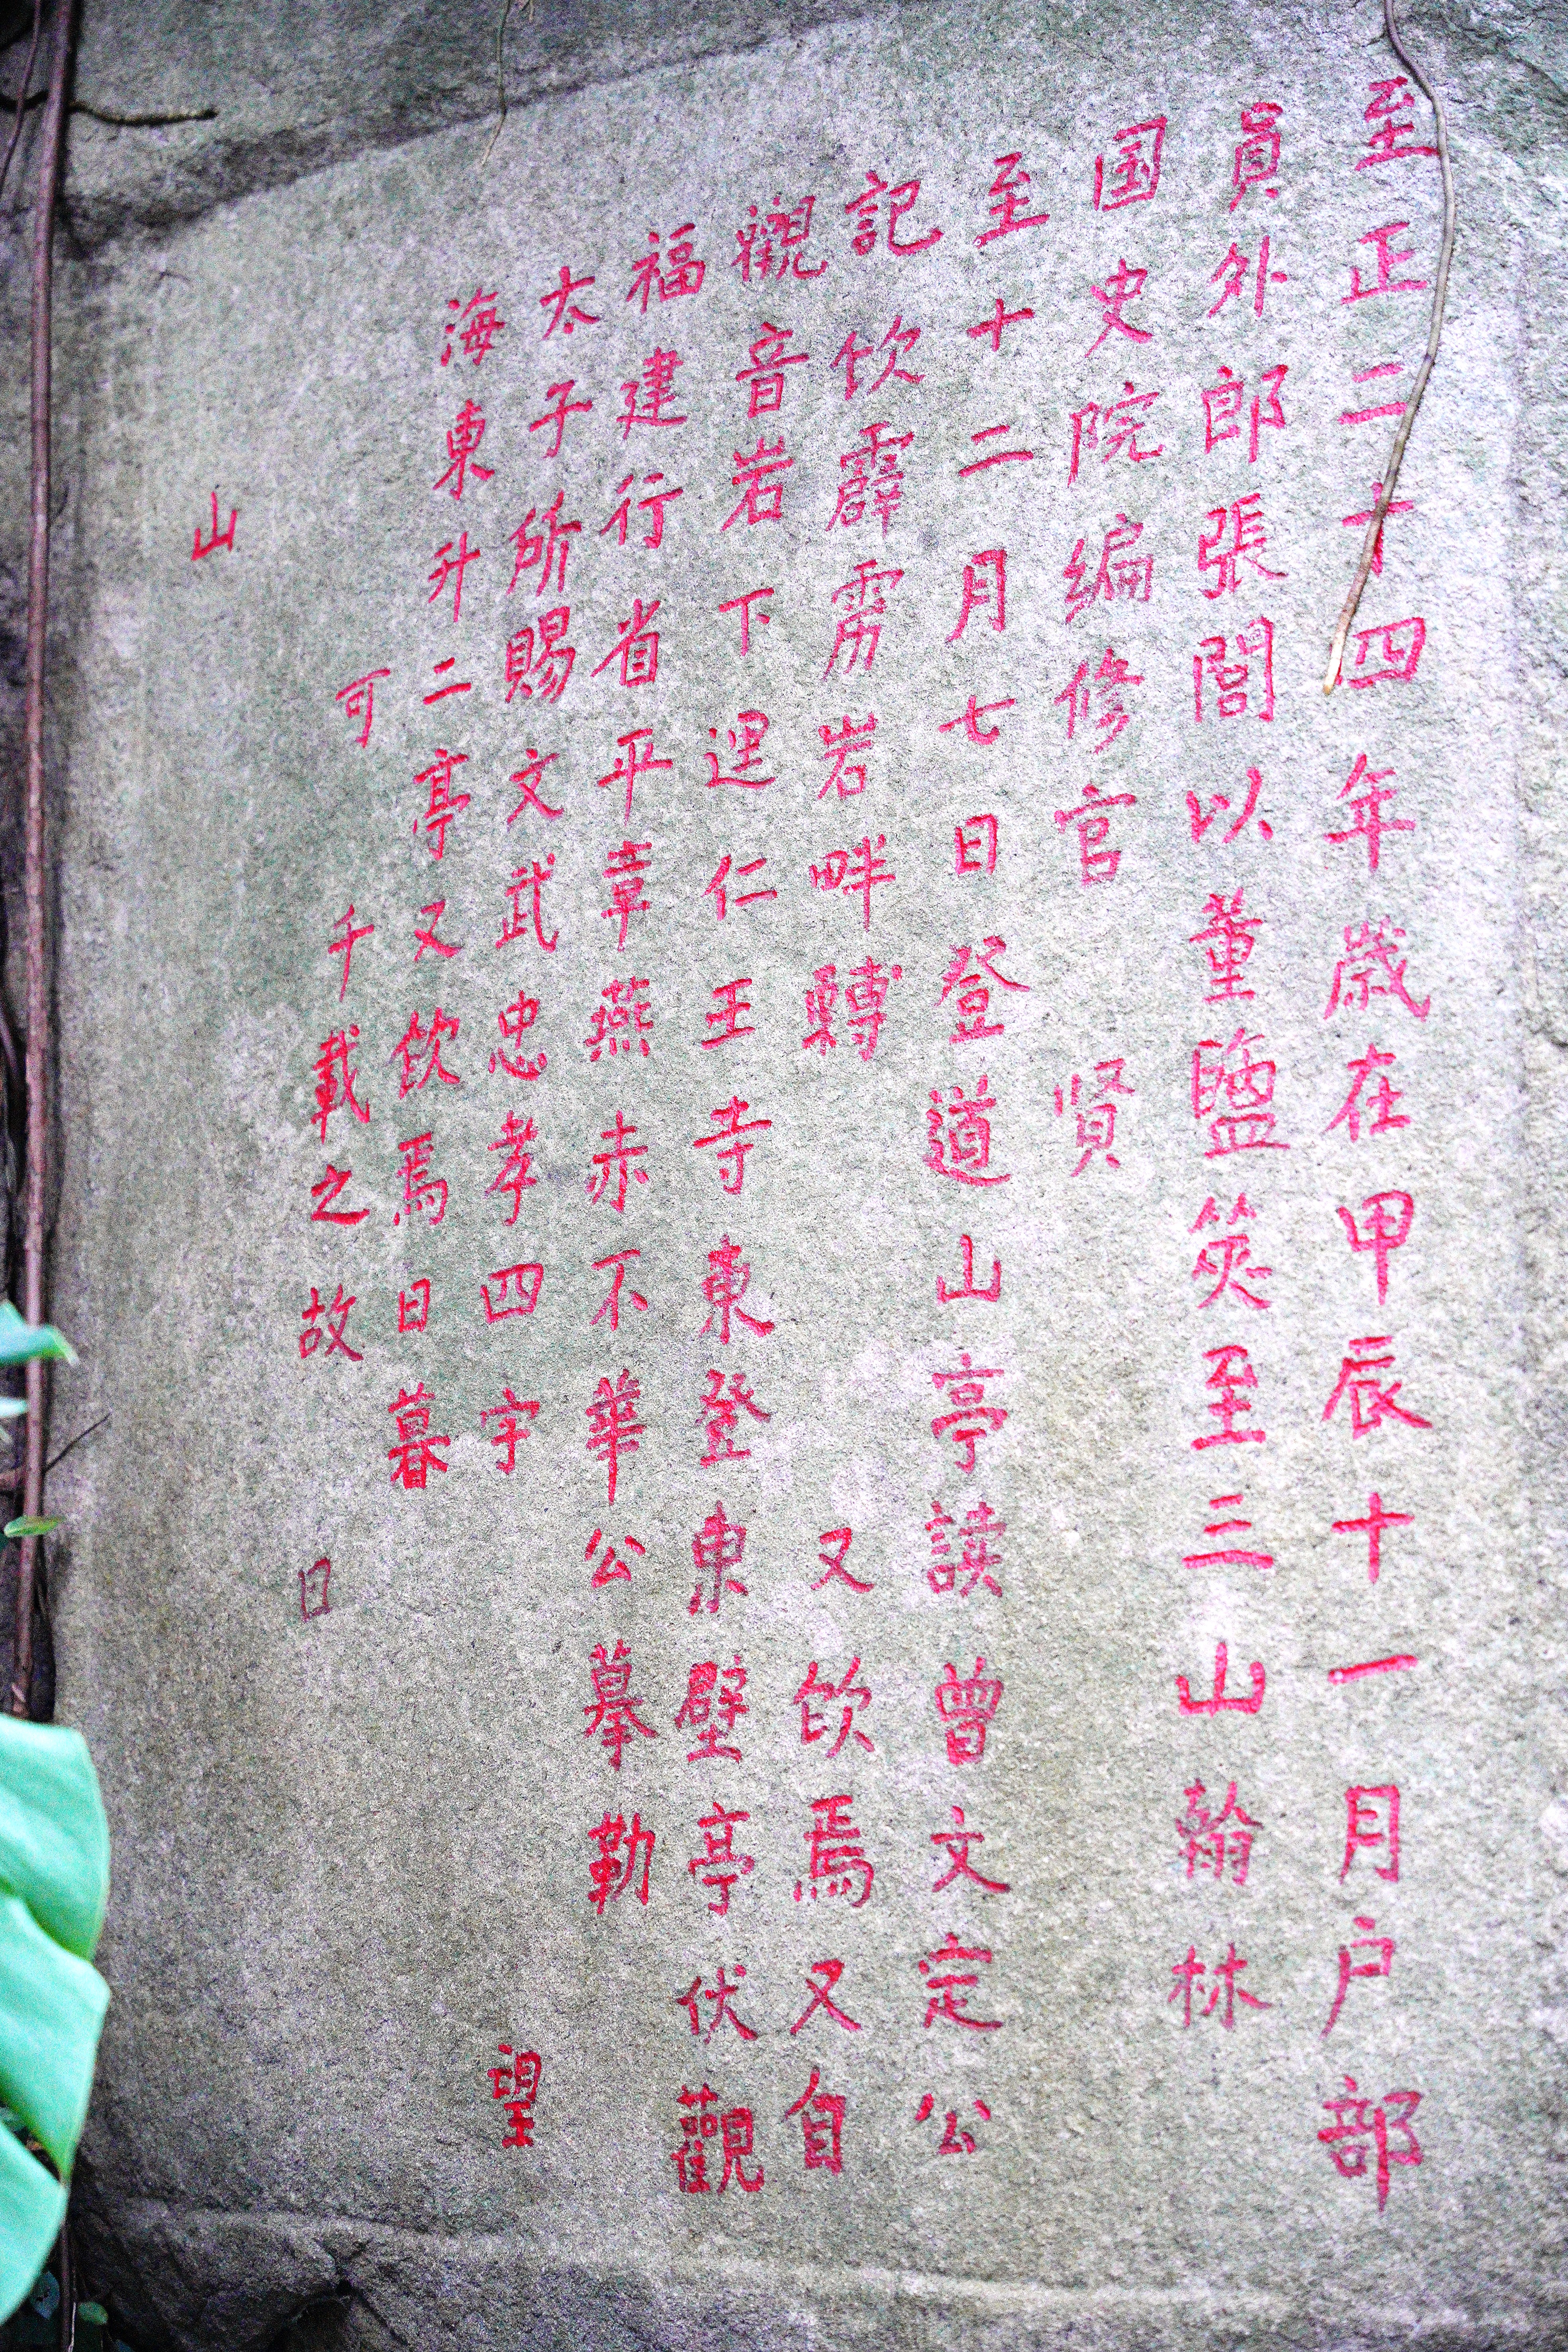 至正二十四年歲在甲辰十一月户部
員外郎張閭以董鹽筴至三山翰林
国史院编修官賢
至十二月七日登道山亭読曾文定公
記饮霹雳岩畔轉又饮焉又自
觀音岩下逕仁王寺東登東壁亭伏觀
福建行省平章燕赤不華公摹勒
太子所賜文武忠孝四字望
海東升二亭又飲焉日暮
可千載之故日
山